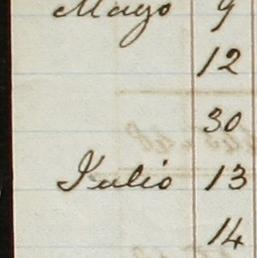 Mayo 9
12
30
Julio 13
14